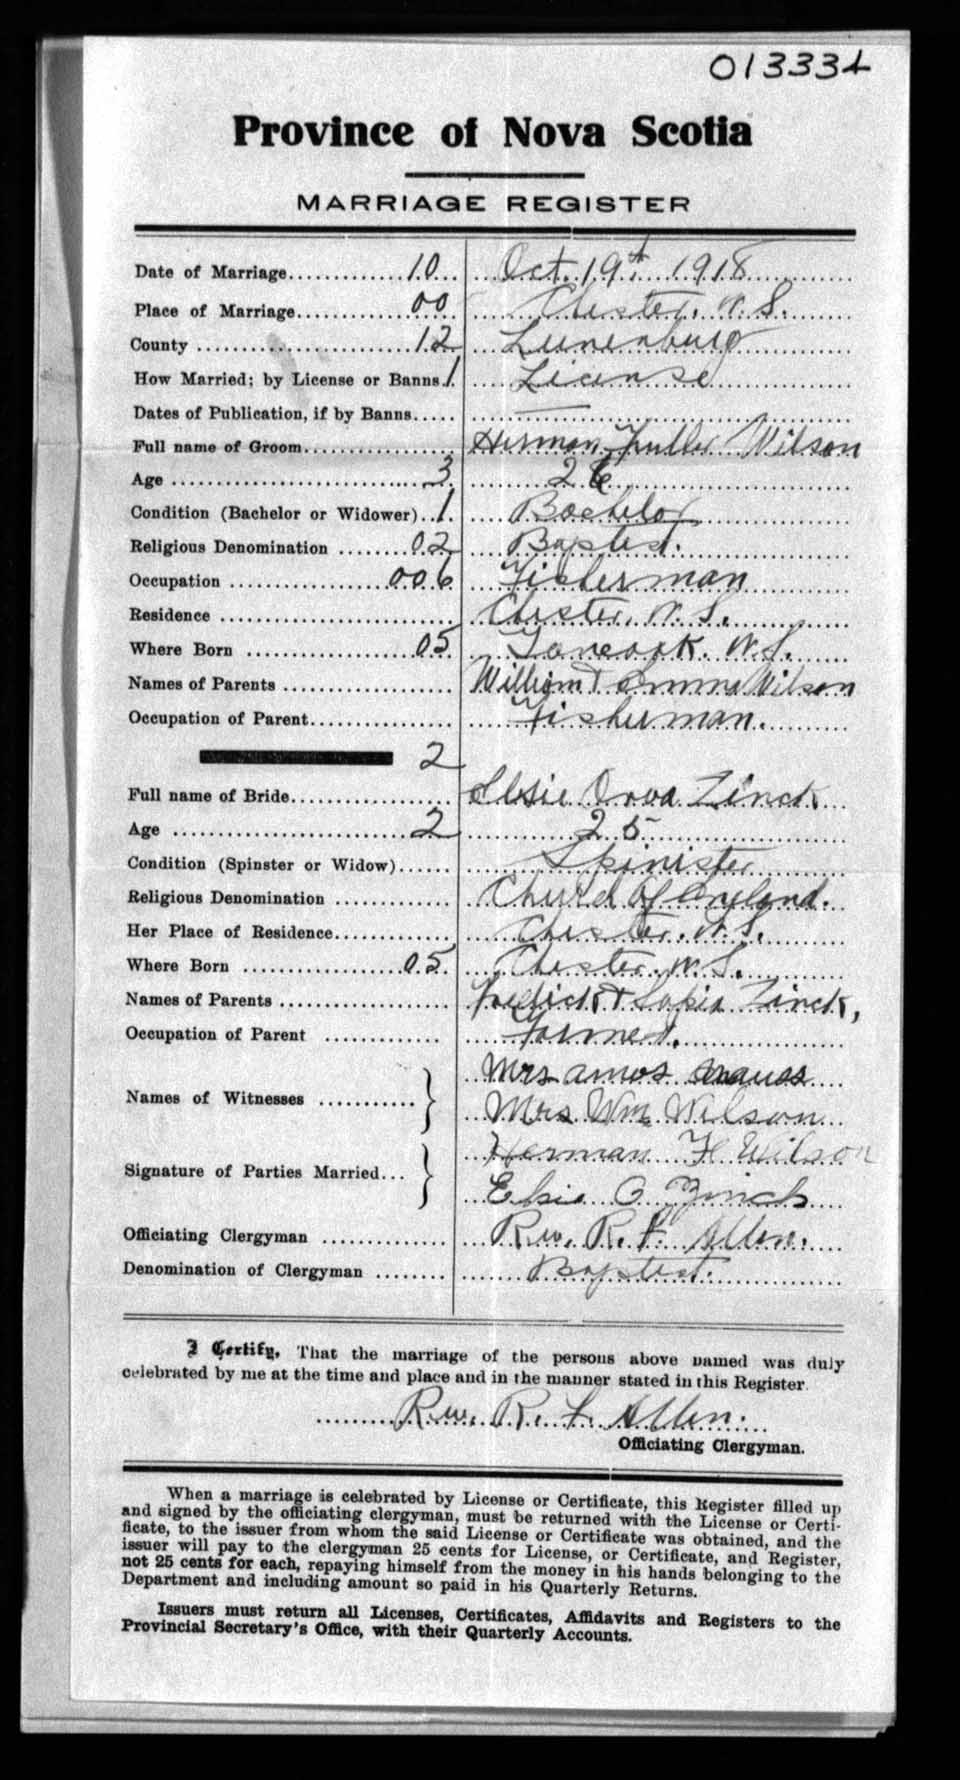 013334
Province of Nova Scotia
MARRIAGE REGISTER
Date of Marriage 10 Oct. 19th 1918
Place of Marriage 00 Chester. N.S.
County 12 Lunenburg
How Married; by License or Banns 1 License
Dates of Publication, if by Banns —
Full name of Groom Herman Fuller Wilson
Age 3 26
Condition (Bachelor or Widower) 1 Bachelor
Religious Denomination 02 Baptist.
Occupation 006 Fisherman
Residence Chester. N.S.
Where Born 05 Tancook. N.S.
Names of Parents William & Emma Wilson
Occupation of Parent Fisherman.
2
Full name of Bride Elsie Orva Zinck
Age 2 25
Condition (Spinster or Widow) Spinister
Religious Denomination Church Of England.
Her Place of Residence Chester. N.S.
Where Born 05 Chester. N.S.
Names of Parents & Zinck,
Occupation of Parent Farmer.
Names of Witnesses } Mrs Amos
Mrs Wm Wilson
Signature of Parties Married } Herman F Wilson
Elsie O Zinck
Officiating Clergyman Rev. R. F. Allen.
Denomination of Clergyman Baptist.
I Certify, That the marriage of the persons above named was duly
celebrated by me at the time and place and in the manner stated in this Register.
Rev. R. F. Allen.
Officiating Clergyman.
When a marriage is celebrated by License or Certificate, this Register filled up
and signed by the officiating clergyman, must be returned with the License or Certi-
ficate, to the issuer from whom the said License or Certificate was obtained, and the
issuer will pay to the clergyman 25 cents for License, or Certificate, and Register,
not 25 cents for each, repaying himself from the money in his hands belonging to the
Department and including amount so paid in his Quarterly Returns.
Issuers must return all Licenses, Certificates, Affidavits and Registers to the
Provincial Secretary's Office, with their Quarterly Accounts.